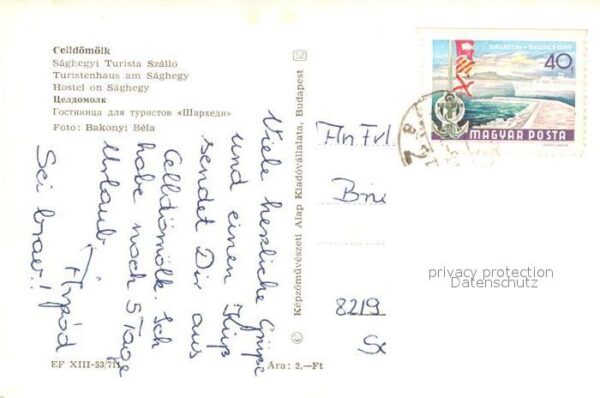 Celldömölk
Sághegyi Turista Szálló
Turistenhaus am Sághegy
Hostel on Sághegy
Целдомолк
Гостиница для туристов «Шархеди»
Foto: Bakonyi Béla
Viele herzliche Grüße
und einen Kuß
sendet Dir aus
Celldömölk. Ich
habe noch 5 Tage
Urlaub.
Árpád
Sei brav!
EF XIII-53/711
Ára: 2,—Ft
© Képzőművészeti Alap Kiadóvállalata, Budapest
BALATON - BADACSONY
40
MAGYAR POSTA
An Frl.
8219
privacy protection
Datenschutz